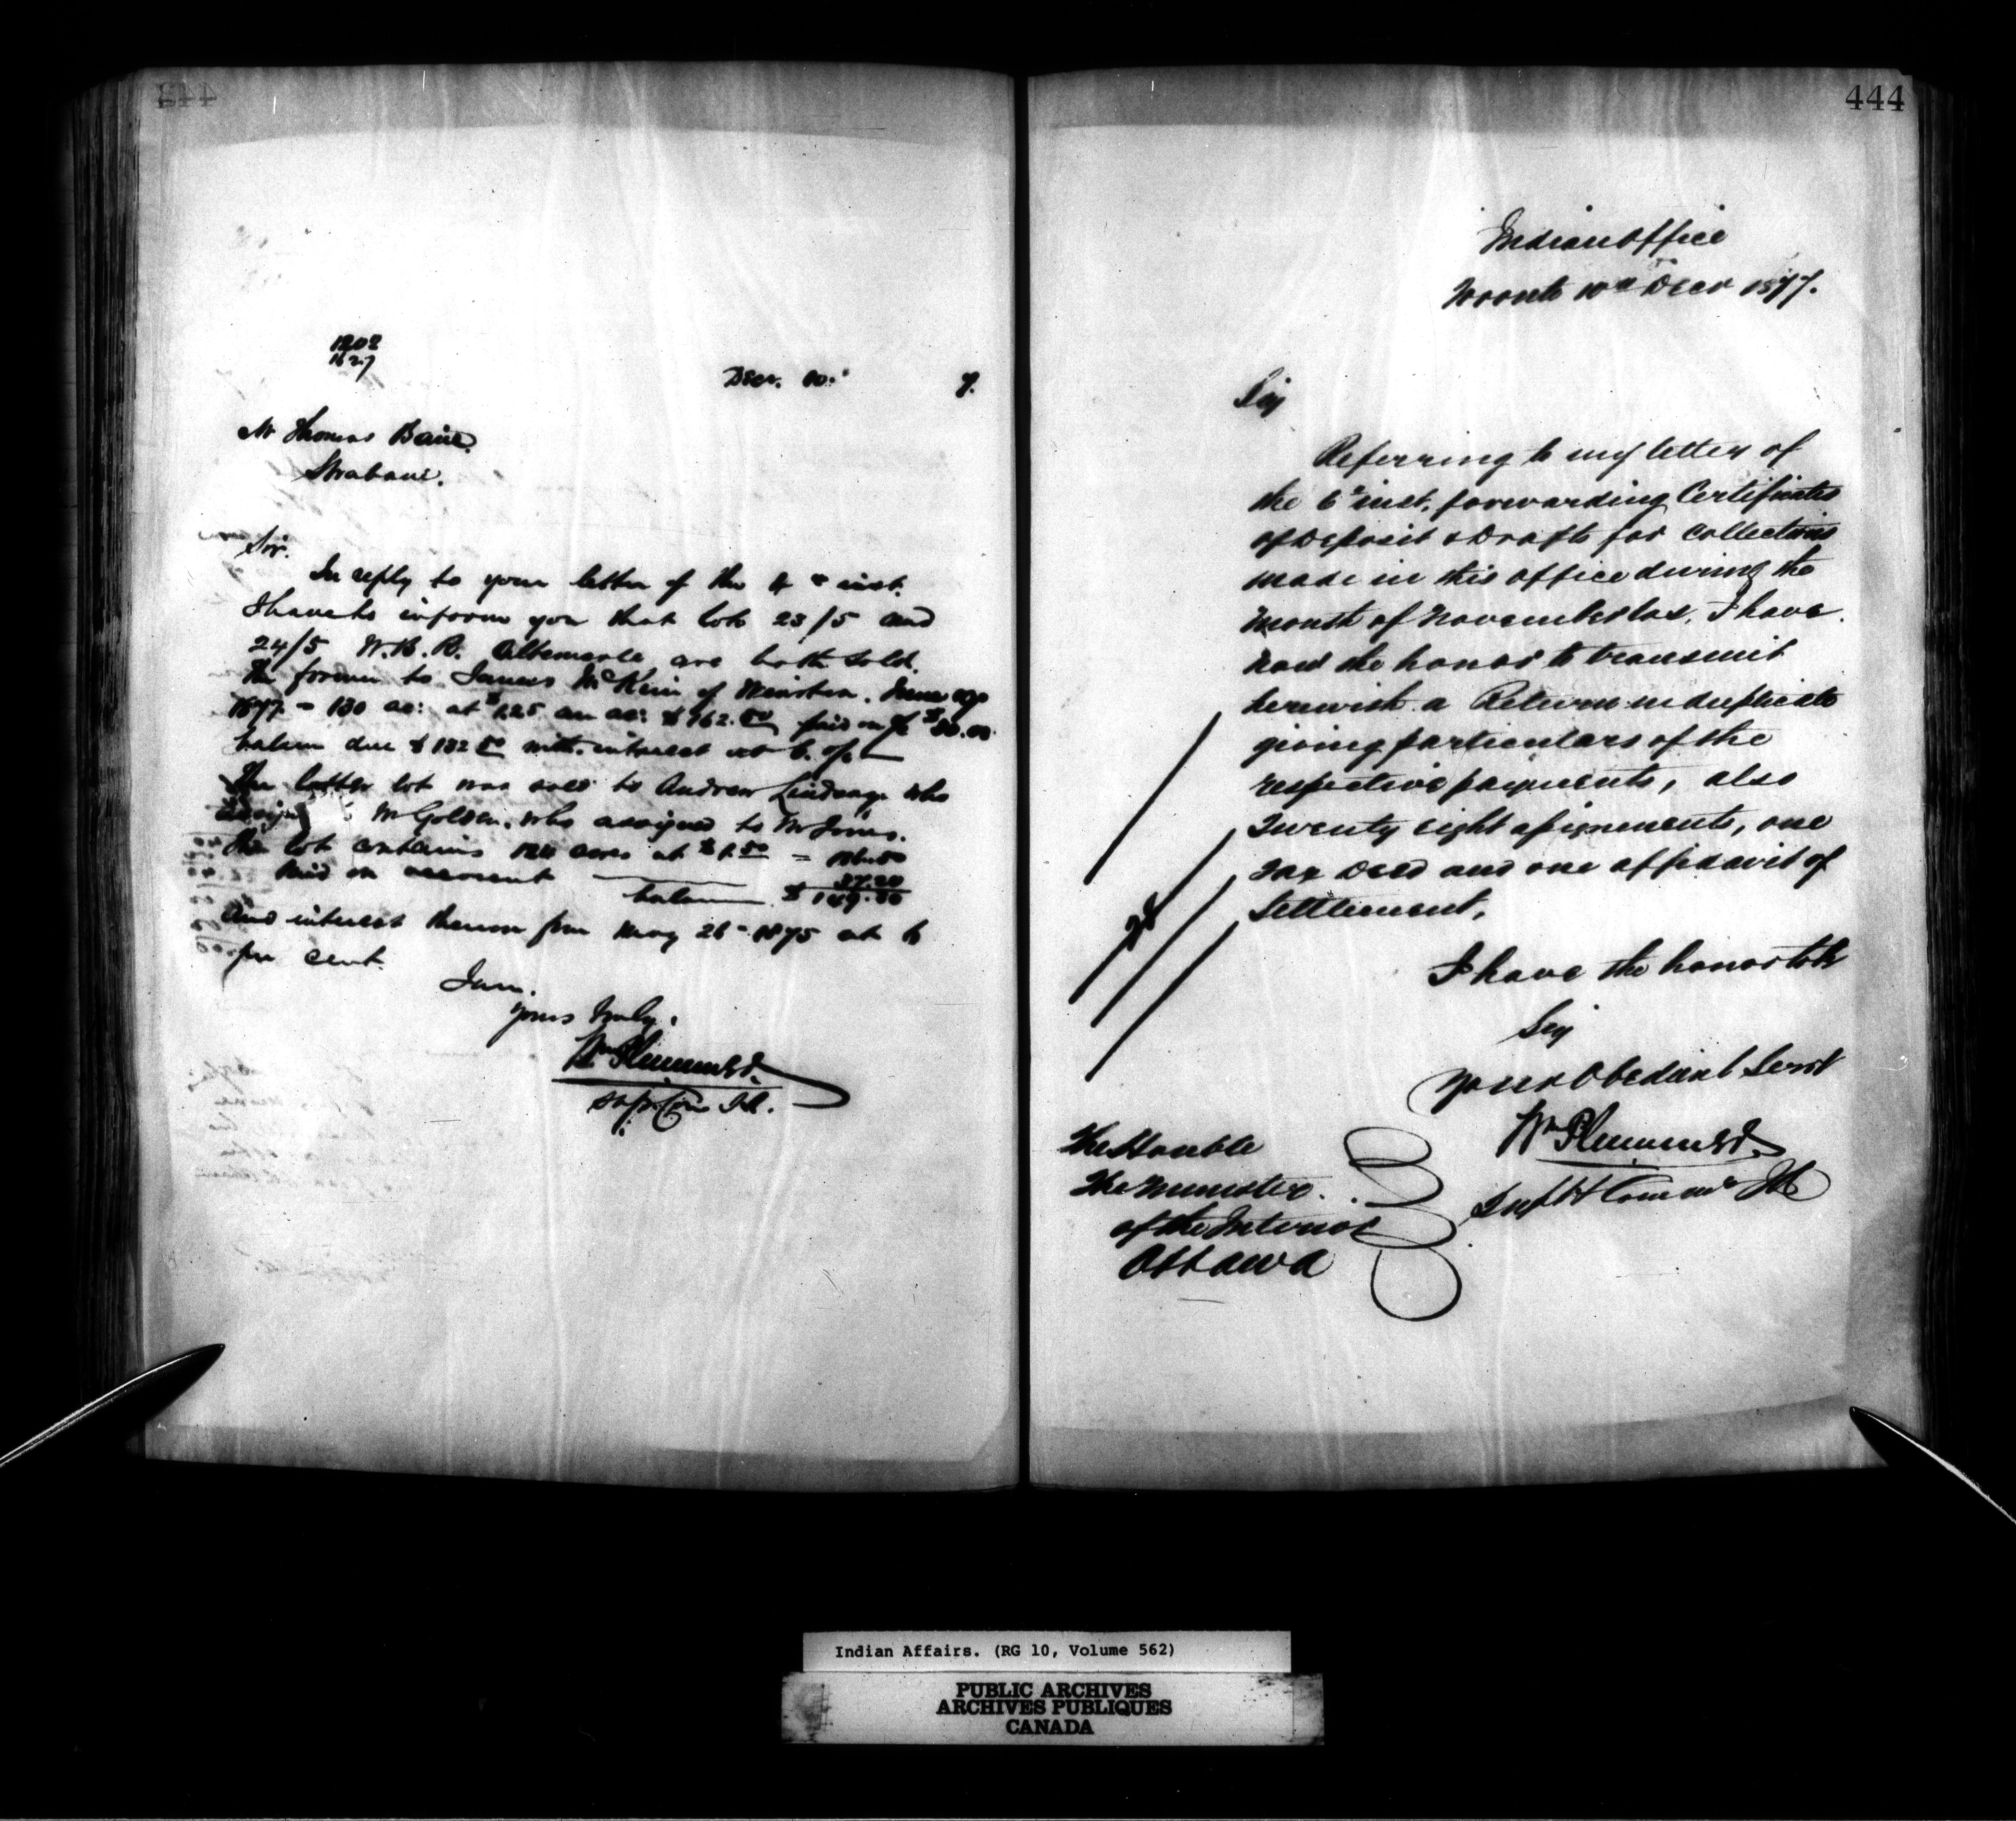 1202
1627
Decr. 10. 7.
Mr Thomas Bain
Strabane.
Sir.
In reply to your letter of the 4th inst.
I have to inform you that lots 23/5 and
24/5 W.B.R. Albemarle are both sold.
The former to James McKim of Wiarton. June
1877 - 130 ac: at $1.25 an ac: $162.50 paid on % $30.00
balance due $132.50 with interest at 6. p/c
The latter lot was sold to Andrew Lindsay who
assigned McGolden. who assigned to Mr Jones.
The lot contains acres at $1.50 =
Paid on account 37.20
balance $149.
and interest thereon from May 26 - 1875 at 6
per cent.
I am.
Yours truly.
Wm Plummer
Supt Comr I.A.
444
Indian Office
Toronto 10th Decr 1877.
Sir
Referring to my letter of
the 6th inst, forwarding Certificates
of Deposit & Drafts for collections
made in this office during the
month of November last, I have
now the honor to transmit
herewith a Return in duplicate
giving particulars of the
respective payments, also
twenty eight assignments, one
Tax Deed and one affidavit of
Settlement,
28
I have the honor to be
Sir
Your Obedient Servt
Wm Plummer
Supt & Commr IA
The Honble
The Minister
of the Interior
Ottawa
Indian Affairs. (RG 10, Volume 562)
PUBLIC ARCHIVES
ARCHIVES PUBLIQUES
CANADA